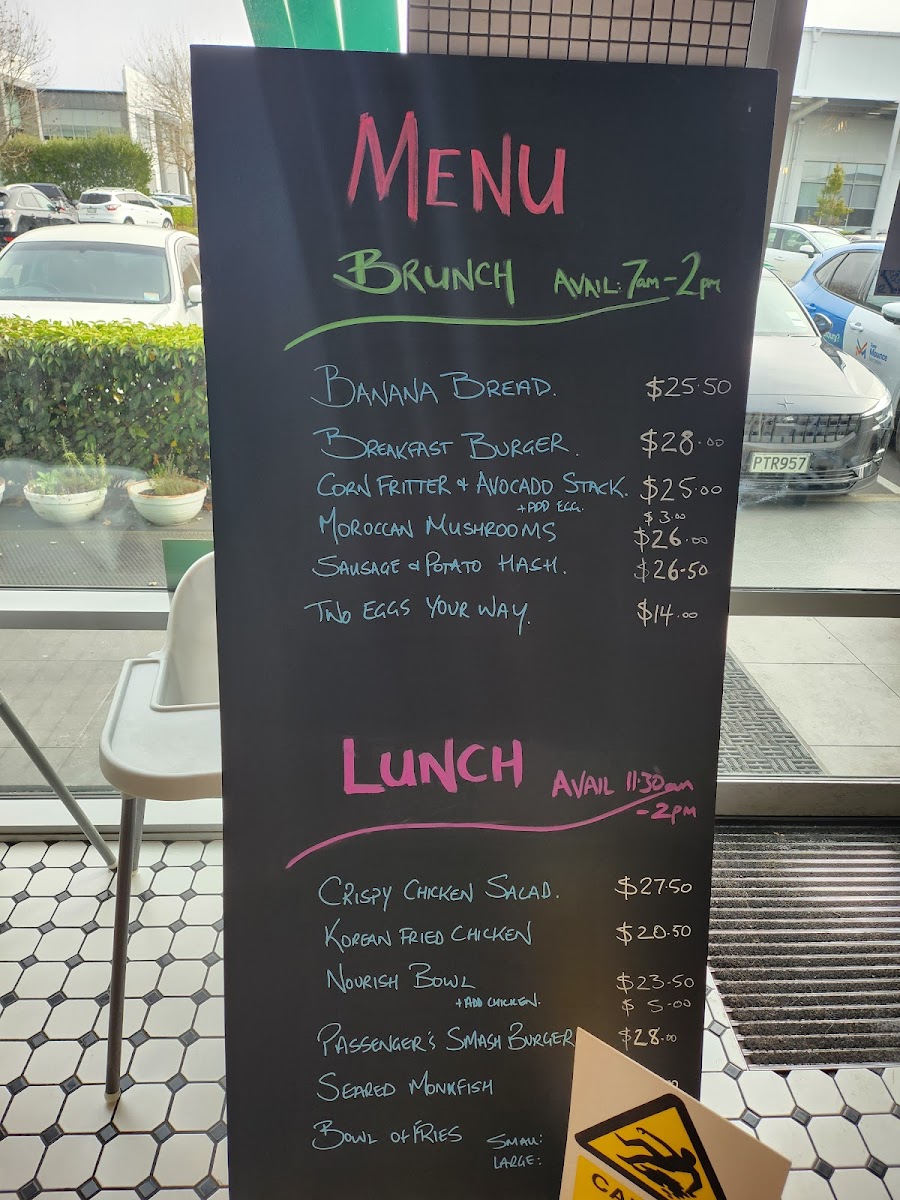 MENU
BRUNCH AVAIL: 7am-2pm
BANANA BREAD. $25.50
BREAKFAST BURGER. $28.00
CORN FRITTER + AVOCADO STACK. $25.00
+ADD EGG. $3.00
MOROCCAN MUSHROOMS $26.00
SAUSAGE & POTATO HASH. $26.50
TWO EGGS YOUR WAY. $14.00
LUNCH AVAIL 11.30am
-2pm
CRISPY CHICKEN SALAD. $27.50
KOREAN FRIED CHICKEN $20.50
NOURISH BOWL $23.50
+ADD CHICKEN. $5.00
PASSENGER'S SMASH BURGER $28.00
SEARED MONKFISH
BOWL OF FRIES SMALL:
LARGE:
PTR957